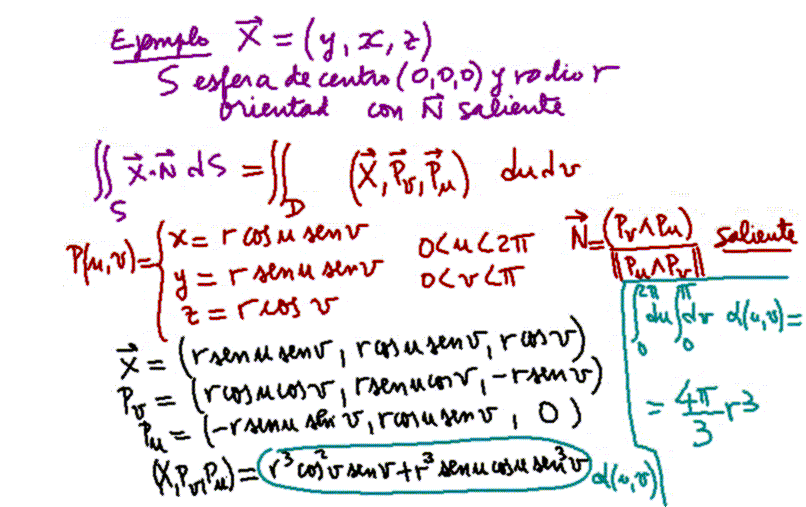 Ejemplo X⃗ = (y, x, z)
S esfera de centro (0,0,0) y radio r
orientad con N⃗ saliente
∬_S X⃗·N⃗ dS = ∬_D (X⃗, P⃗_v, P⃗_u) du dv
P(u,v) = { x = r cos u sen v
y = r sen u sen v
z = r cos v
0<u<2π
0<v<π
N⃗ = (P_v∧P_u) / ‖P_u∧P_v‖ saliente
X⃗ = (r sen u sen v, r cos u sen v, r cos v)
P_v = (r cos u cos v, r sen u cos v, -r sen v)
P_u = (-r sen u sen v, r cos u sen v, 0)
(X, P_v, P_u) = r³ cos² v sen v + r³ sen u cos u sen³ v α(u,v)
∫_0^{2π} du ∫_0^π dv α(u,v) =
= 4π/3 r³